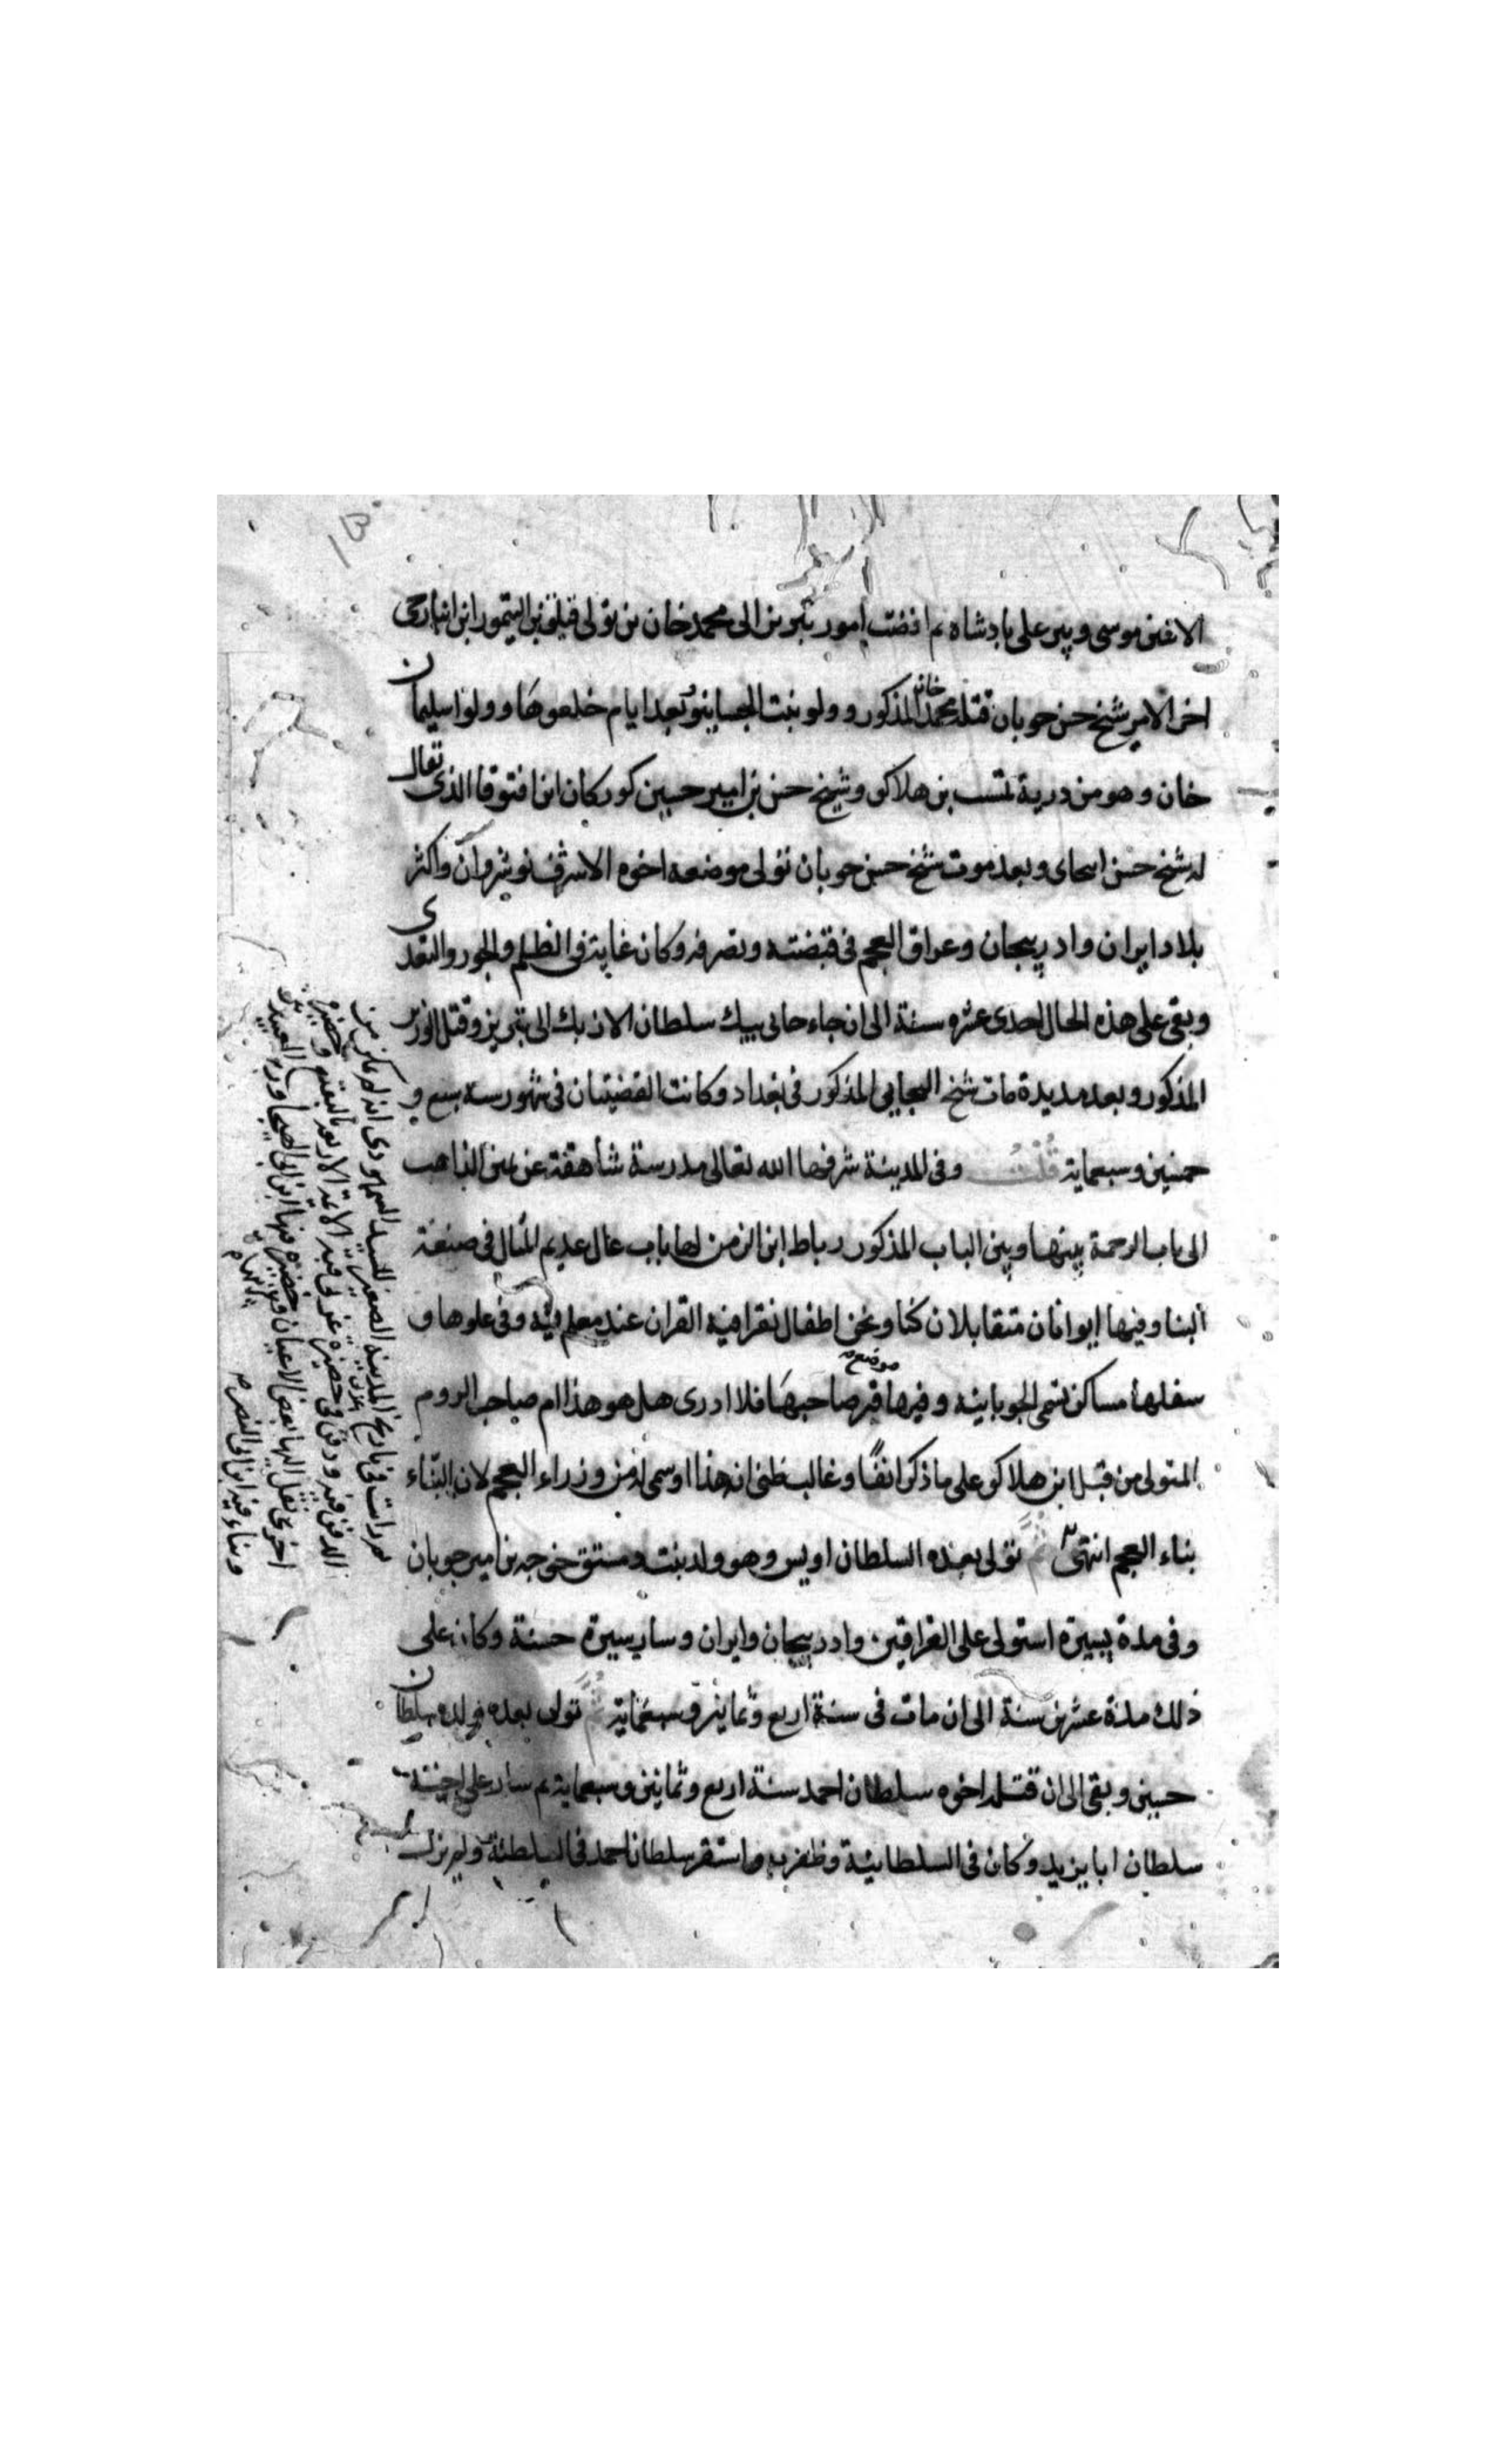 الاغن موسى وبير على بادشاه ثم افضت امور تبريز الى محمد خان بن تولى قتلغ بن اليتمور ابن
اخر الامر شيخ حسن جوبان قتله محمد خان المذكور وولو بنت الجساينو وبعد ايام خلعوها وولوا سليمان
خان وهو من درية بن هلاكو وشيخ حسن بن امير حسين كوركان ابن اقتوقا الذى تقال
له شيخ حسن اسحاى وبعد موت شيخ حسن جوبان تولى موضعه اخوه الاشرف نوشروان واكثر
بلاد ايران وادربيجان وعراق العجم فى قبضته وتصرفه وكان غاية فى الظلم والجور والتعدى
وبقى على هذه الحال احدى عشره سنة الى ان جاء جانى بيك سلطان الازبك الى تبريز وقتل الوزير
المذكور وبعد مديدة مات شيخ المذكور فى بغداد وكانت القضيتان فى شهور سنة سبع و
خمنين وسبعماية قلت وفى المدينة شرفها الله تعالى مدرسة شاهقة عن يمين الذاهب
الى باب الرحمة بينها وبين الباب المذكور رباط ابن الزمن لها باب عال عديم المثال فى صنعة
البنا وفيها ايوانان متقابلان كنا ونحن اطفال نقرا فيه القران عند معلم فيه وفى علوها و
سفلها مساكن تسمى الجوبانيه وفيها موضع قبر صاحبها فلا ادرى هل هو هذا ام صاحب الروم
المتولى من قبل ابن هلاكو على ما ذكر انفا وغالب ظنى انه هذا او سمى له من وزراء العجم لان البناء
بناء العجم انتهى ثم تولى بعده السلطان اويس وهو ولد بنت دمستق خوجه بن امير جوبان
وفى مدة يسيرة استولى على العراقين وادربيجان وايران وسار سيرة حسنة وكان على
ذلك مدة عشرين سنة الى ان مات فى سنة اربع وثمانين وسبعماية ثم تولى بعده ولده سلطان
حسين وبقى الى ان قتله اخوه سلطان احمد سنة اربع وثمانين وسبعماية ثم سار على اخيه
سلطان ابا يزيد وكان فى السلطانية وظفر به واستقر سلطان احمد فى السلطنة ولم يزل
ثم رايت فى تاريخ المدينة الصغير للسيد السمهودى انه لم يمكن من
الدفن فيه ودفن فى حضيره غربى قبه الائمة الاربعة بالبقيع وحضيرة
اخرى نقل اليها بعض الاعيان